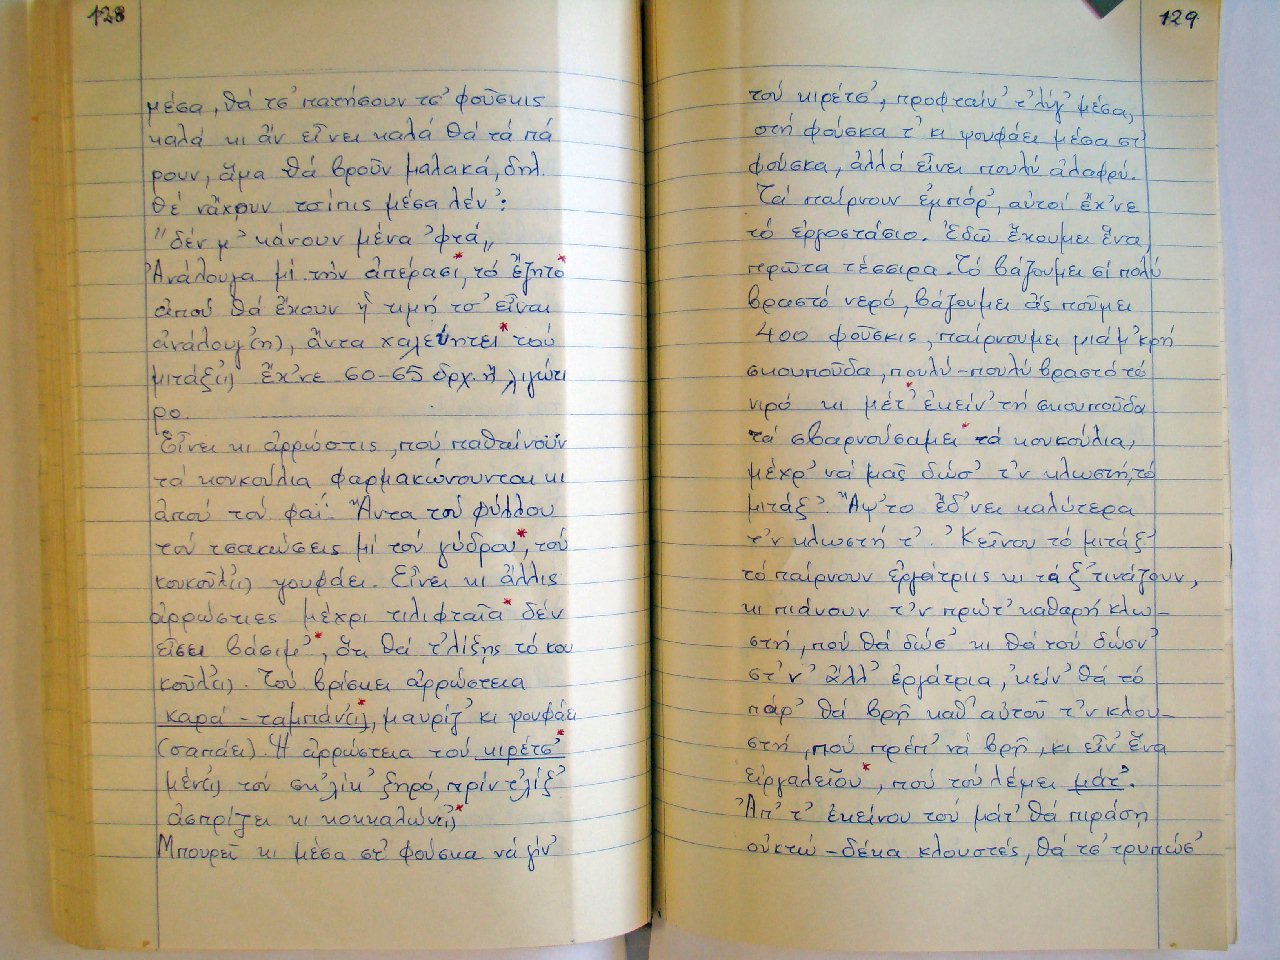 128
μέσα, θά τσ' πατήσουν τσ' φοῦσκις
καλά κι ἄν εἶνει καλά θά τά πά
ρουν, ἅμα θά βροῦν μαλακά, δηλ.
θέ νἄχουν τσίπις μέσα λέν':
"δέν μ' κάνουν μένα 'φτά"
Ἀνάλουγα μί τήν ἀπέρασι*, τό ἔζητο*
ἀπού θά ἔχουν ἡ τιμή τσ' εἶναι
ἀνάλουγ(η), ἄντα χαλεύητει* τού
μιτάξ(ι) ἔχ'νε 60-65 δρχ. ἤ λιγώτι
ρο.
Εἶνει κι ἀρρώστις, πού παθαίνουν
τά κουκούλια φαρμακώνουνται κι
ἀπού τού φαΐ. Ἄντα τού φύλλου
τού τσακώσεις μί τού γύδρου*, τού
κουκοῦλ(ι) ψουφάει. Εἶνει κι ἄλλις
ἀρρώστιες μέχρι τιλιφταῖα* δέν
εἶσει βάσιμ'*, ὅτι θά τ'λίξης τό κου
κοῦλ(ι). Τού βρίσκει ἀρρώστεια
καρά-ταμπάν(ι)*, μαυρίζ' κι ψουφάει
(σαπάει). Ἡ ἀρρώστεια τού κιρέτσ'*
μέν(ι) τόν σκ'λίκ' ξηρό, πρίν τ'λίξ'
ἀσπρίζει κι κοκκαλών(ι)*
Μπουρεῖ κι μέσα στ' φούσκα νά γίν'
129
τού κιρέτσ', προφταίν' τ'λίγ' μέσα,
στή φούσκα τ' κι ψουφάει μέσα στ'
φούσκα, ἀλλά εἶνει πουλύ ἀλαφρύ.
Τά παίρνουν ἐμπόρ', αὐτοί ἔχ'νε
τό ἐργοστάσιο. Ἐδῶ ἔχουμει ἕνα,
πρῶτα τέσσιρα. Τό βάζουμει σί πολύ
βραστό νερό, βάζουμει ἄς ποῦμει
400 φοῦσκις, παίρνουμει μιά μ'κρή
σκουποῦδα, πουλύ-πουλύ βραστό τό
νιρό κι μέτ'* ἐκείν' τή σκουποῦδα
τά σβαρνούσαμει* τά κουκούλια,
μέχρ' νά μᾶς δώσ' τ'ν κλωστή, τό
μιτάξ'. Ἄψ'το ἔδ'νει καλύτερα
τ'ν κλωστή τ'. Κεῖνου τό μιτάξ'
τό παίρνουν ἐργάτριις κι τά ξ'τινάζουν,
κι πιάνουν τ'ν πρώτ' καθαρή κλω-
στή, πού θά δώσ' κι θά τού δώσν'
στ'ν' ἄλλ' ἐργάτρια, 'κείν' θά τό
πάρ' θά βρῆ καθ' αὐτοῦ τ'ν κλου-
στή, πού πρέπ' νά βρῆ, κι εἶν' ἕνα
εἰργαλεῖου*, πού τού λέμει μάτ'.
Ἀπ' τ' ἐκείνου τού μάτ' θά πιράση
οὐκτώ-δέκα κλουστές, θά τσ' τρυπώσ'